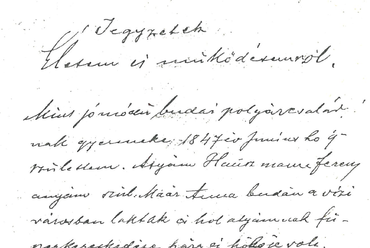 Jegyzetek
Életem és működésemről.
Mint jómódú budai polgárcsalád
nak gyermeke, 1847 év Junius hó 9
születtem. Atyám Ferencz
anyám szül. Maár Anna budán a vízi
városban laktak és hol atyámnak fü-
szerkereskedése, háza és volt.